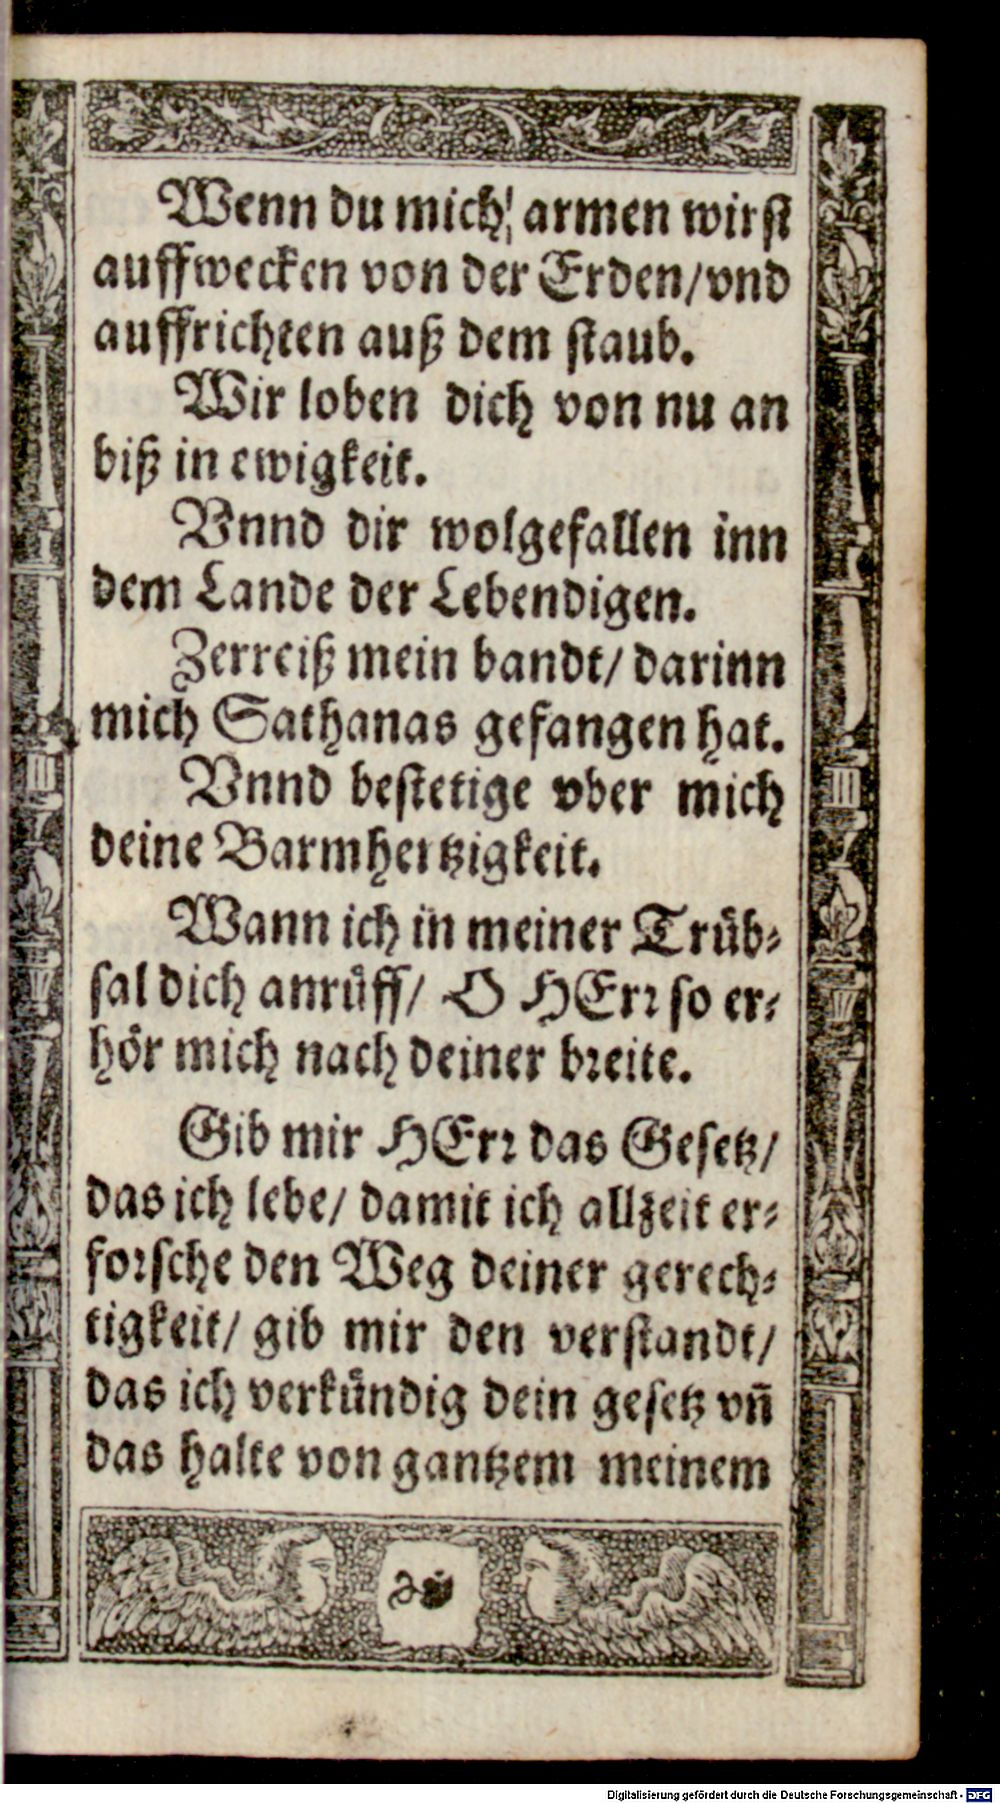 Wenn du mich armen wirst
auffwecken von der Erden/vnd
auffrichten auß dem staub.
Wir loben dich von nu an
biß in ewigkeit.
Vnnd dir wolgefallen inn
dem Lande der Lebendigen.
Zerreiß mein bandt/ darinn
mich Sathanas gefangen hat.
Vnnd bestetige vber mich
deine Barmhertzigkeit.
Wann ich in meiner Trüb⸗
sal dich anrüff/ O HErr so er⸗
hör mich nach deiner breite.
Gib mir HErr das Gesetz/
das ich lebe/ damit ich allzeit er⸗
forsche den Weg deiner gerech⸗
tigkeit/ gib mir den verstandt/
das ich verkündig dein gesetz vn̄
das halte von gantzem meinem
Digitalisierung gefördert durch die Deutsche Forschungsgemeinschaft - DFG